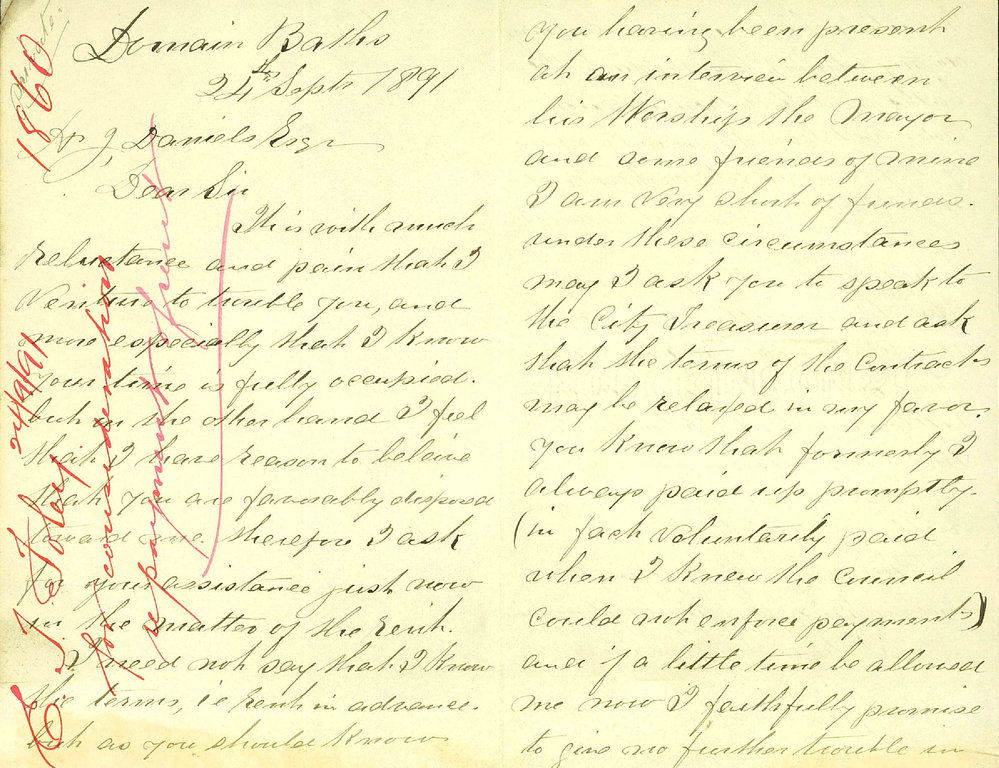 Domain Baths
24th Septr 1891
H J, Daniels Esqr
Dear Sir
It is with much
reluctance and pain that I
venture to trouble you, and
more especially that I know
your time is fully occupied.
but on the other hand I feel
that I have reason to beleive
that you are favorably disposed
toward me. therefore I ask
for your assistance just now
in the matter of the rent.
I need not say that I know
the terms, i e rent in advance.
but as you should know
you having been present
at an interview between
his Worship the Mayor
and some friends of mine
I am very short of funds.
under these circumstances
may I ask you to speak to
the City Treasurer and ask
that the terms of the contract
may be relaxed in my favor.
you know that formerly I
always paid up promptly.
(in fact voluntarily paid
when I knew the Council
could not enforce payments)
and if a little time be allowed
me now I faithfully promise
to give no further trouble in
1860
E. J Foley 24/9/91
for consideration
repayment of rent